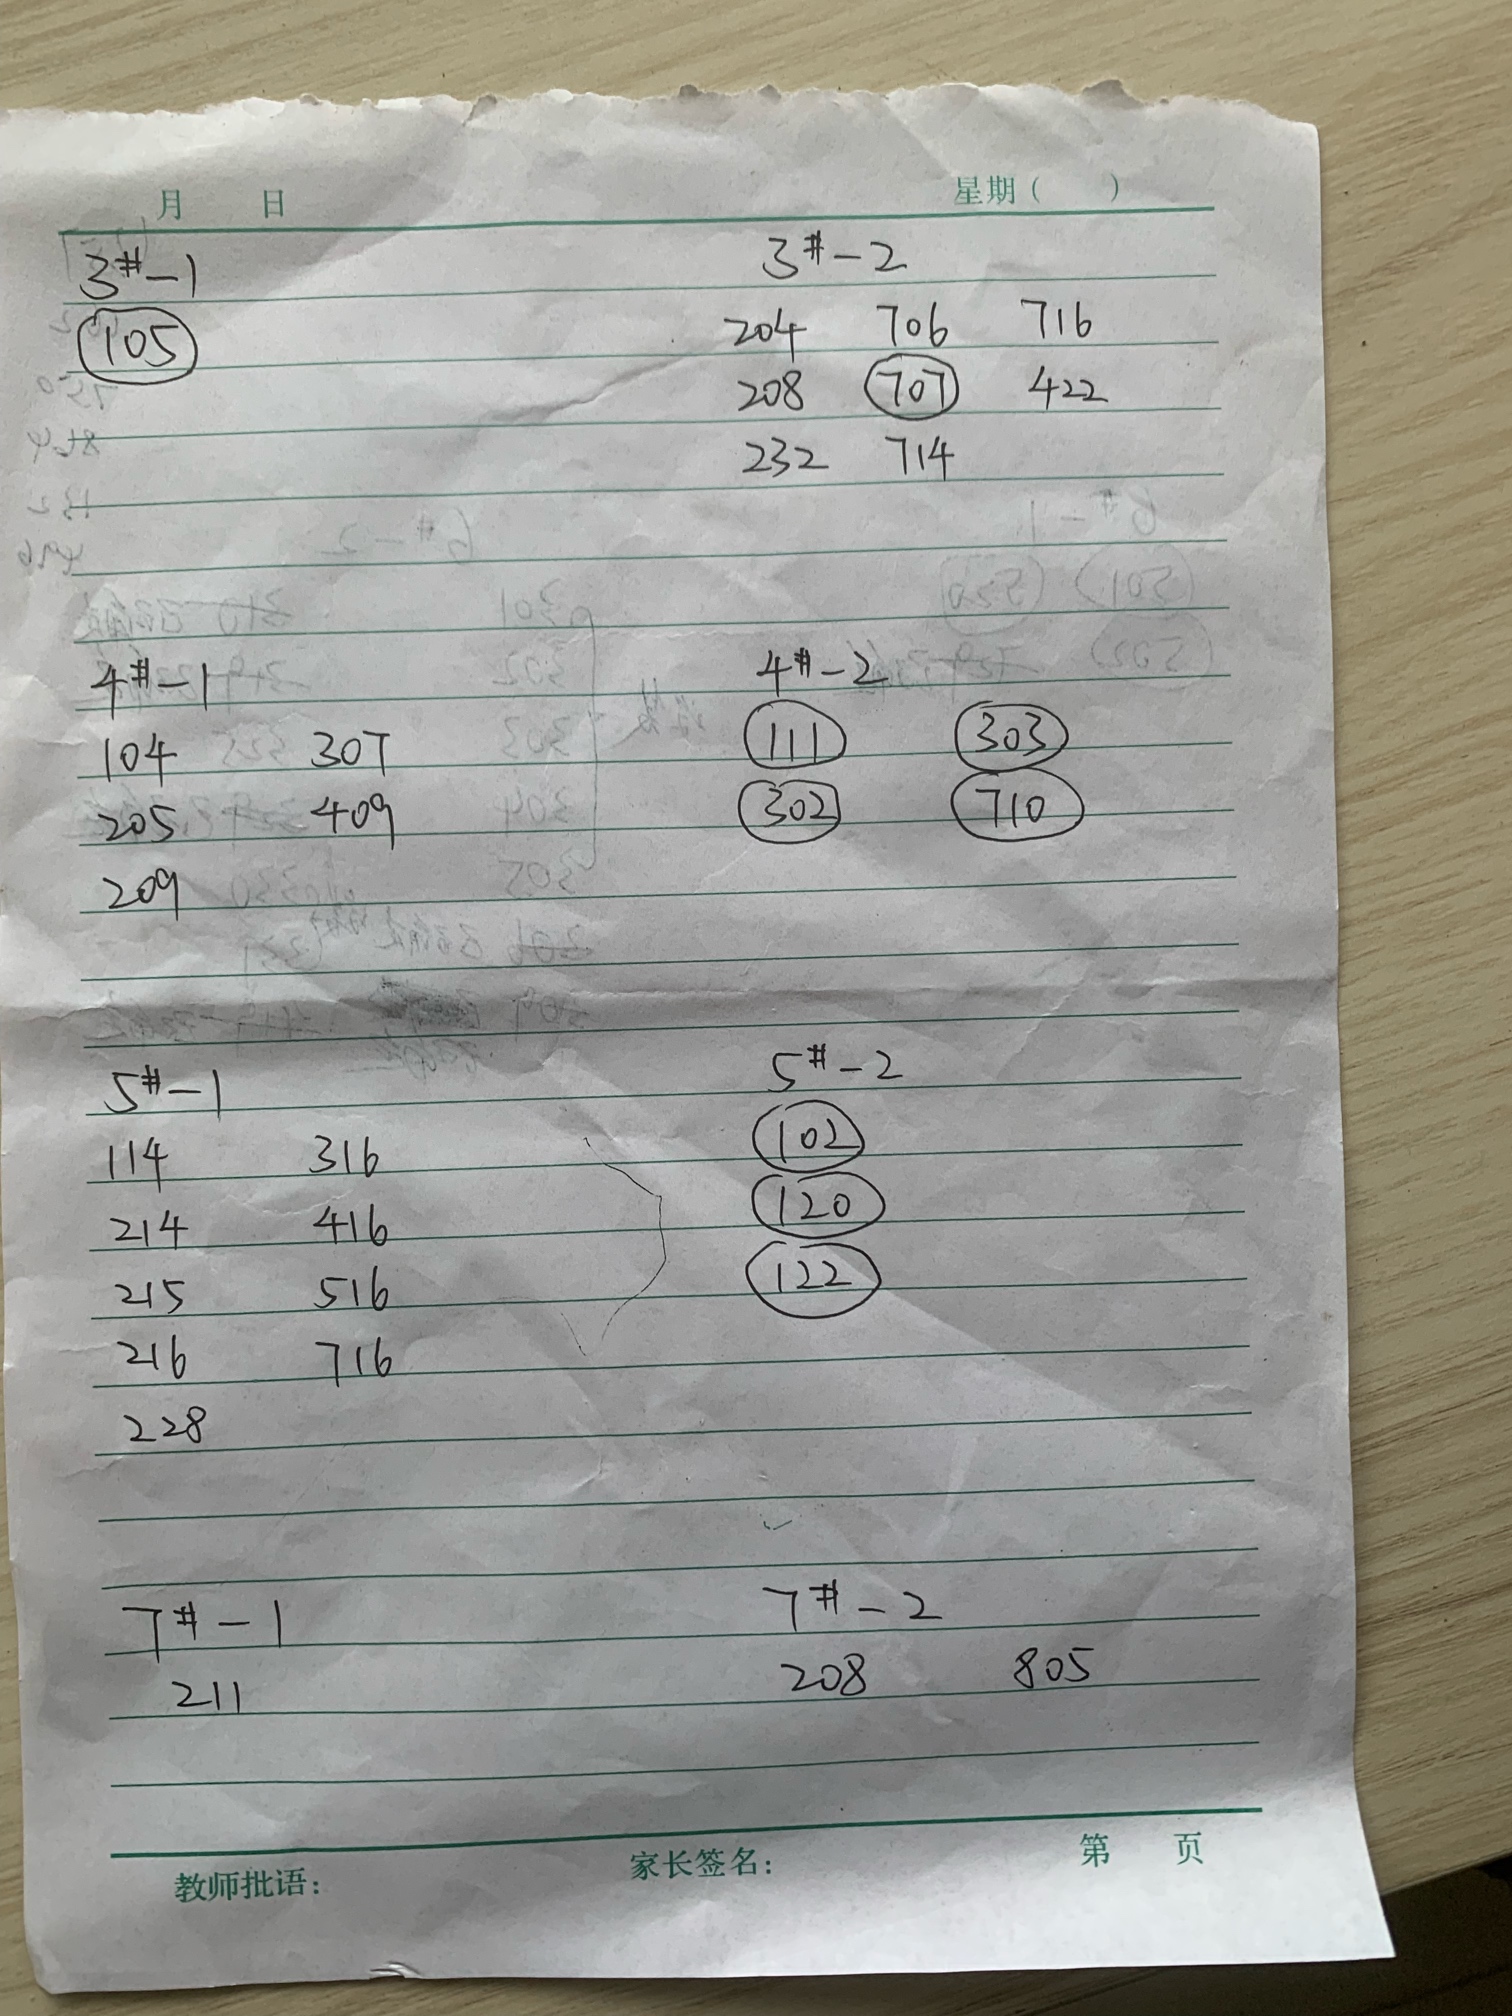 月 日 星期( )
3#-1 3#-2
105 204 706 716
208 707 422
232 714
4#-1 4#-2
104 307 111 303
205 409 302 710
209
5#-1 5#-2
114 316 102
214 416 120
215 516 122
216 716
228
7#-1 7#-2
211 208 805
教师批语: 家长签名: 第 页